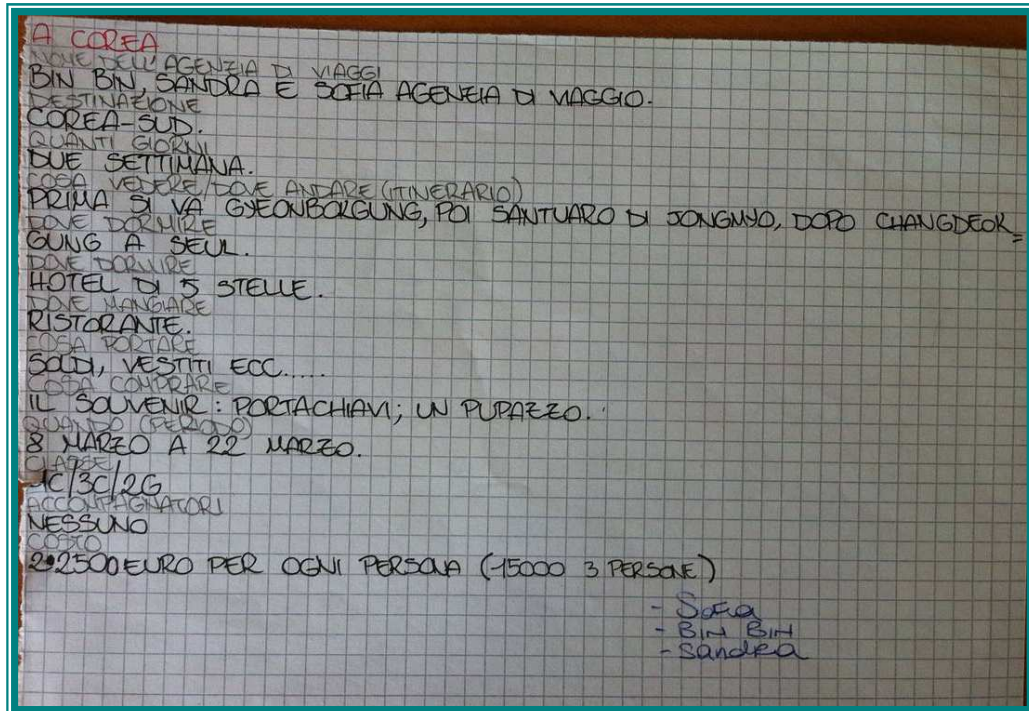 A COREA
NOME DELL'AGENZIA DI VIAGGI
BIN BIN, SANDRA E SOFIA AGENZIA DI VIAGGIO.
DESTINAZIONE
COREA-SUD.
QUANTI GIORNI
DUE SETTIMANA.
COSA VEDERE/DOVE ANDARE (ITINERARIO)
PRIMA SI VA GYEONBORGUNG, POI SANTUARO DI JONGMYO, DOPO CHANGDEOK=
DOVE DORMIRE
GUNG A SEUL.
DOVE DORMIRE
HOTEL DI 5 STELLE.
DOVE MANGIARE
RISTORANTE.
COSA PORTARE
SOLDI, VESTITI ECC.....
COSA COMPRARE
IL SOUVENIR: PORTACHIAVI; UN PUPAZZO.
QUANDO (PERIODO)
8 MARZO A 22 MARZO.
CLASSE
1C/3C/2G
ACCOMPAGNATORI
NESSUNO
COSTO
2500 EURO PER OGNI PERSONA (15000 3 PERSONE)
- Sofia
- BIN BIN
- Sandra